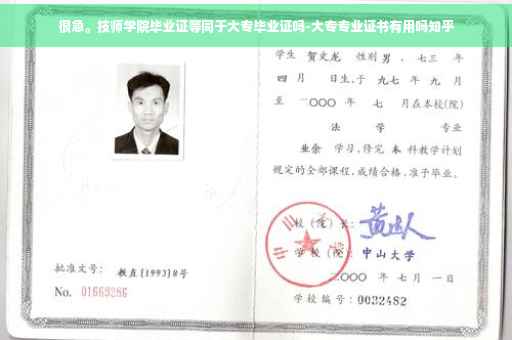 很急。技师学院毕业证等同于大专毕业证吗-大专专业证书有用吗知乎
学生 贺文龙 性别 男，七三 年
四 月 日生，于 九七 年 九 月
至 二〇〇〇 年 七 月在本校(院)
法 学 专业
业余 学习，修完 本 科教学计划
规定的全部课程，成绩合格，准予毕业。
校（院）长：
学 校（院）：中山大学
批准文号： 教直[1993]8号
二〇〇〇 年 七 月 一 日
No. 01669286
学校编号：0032482